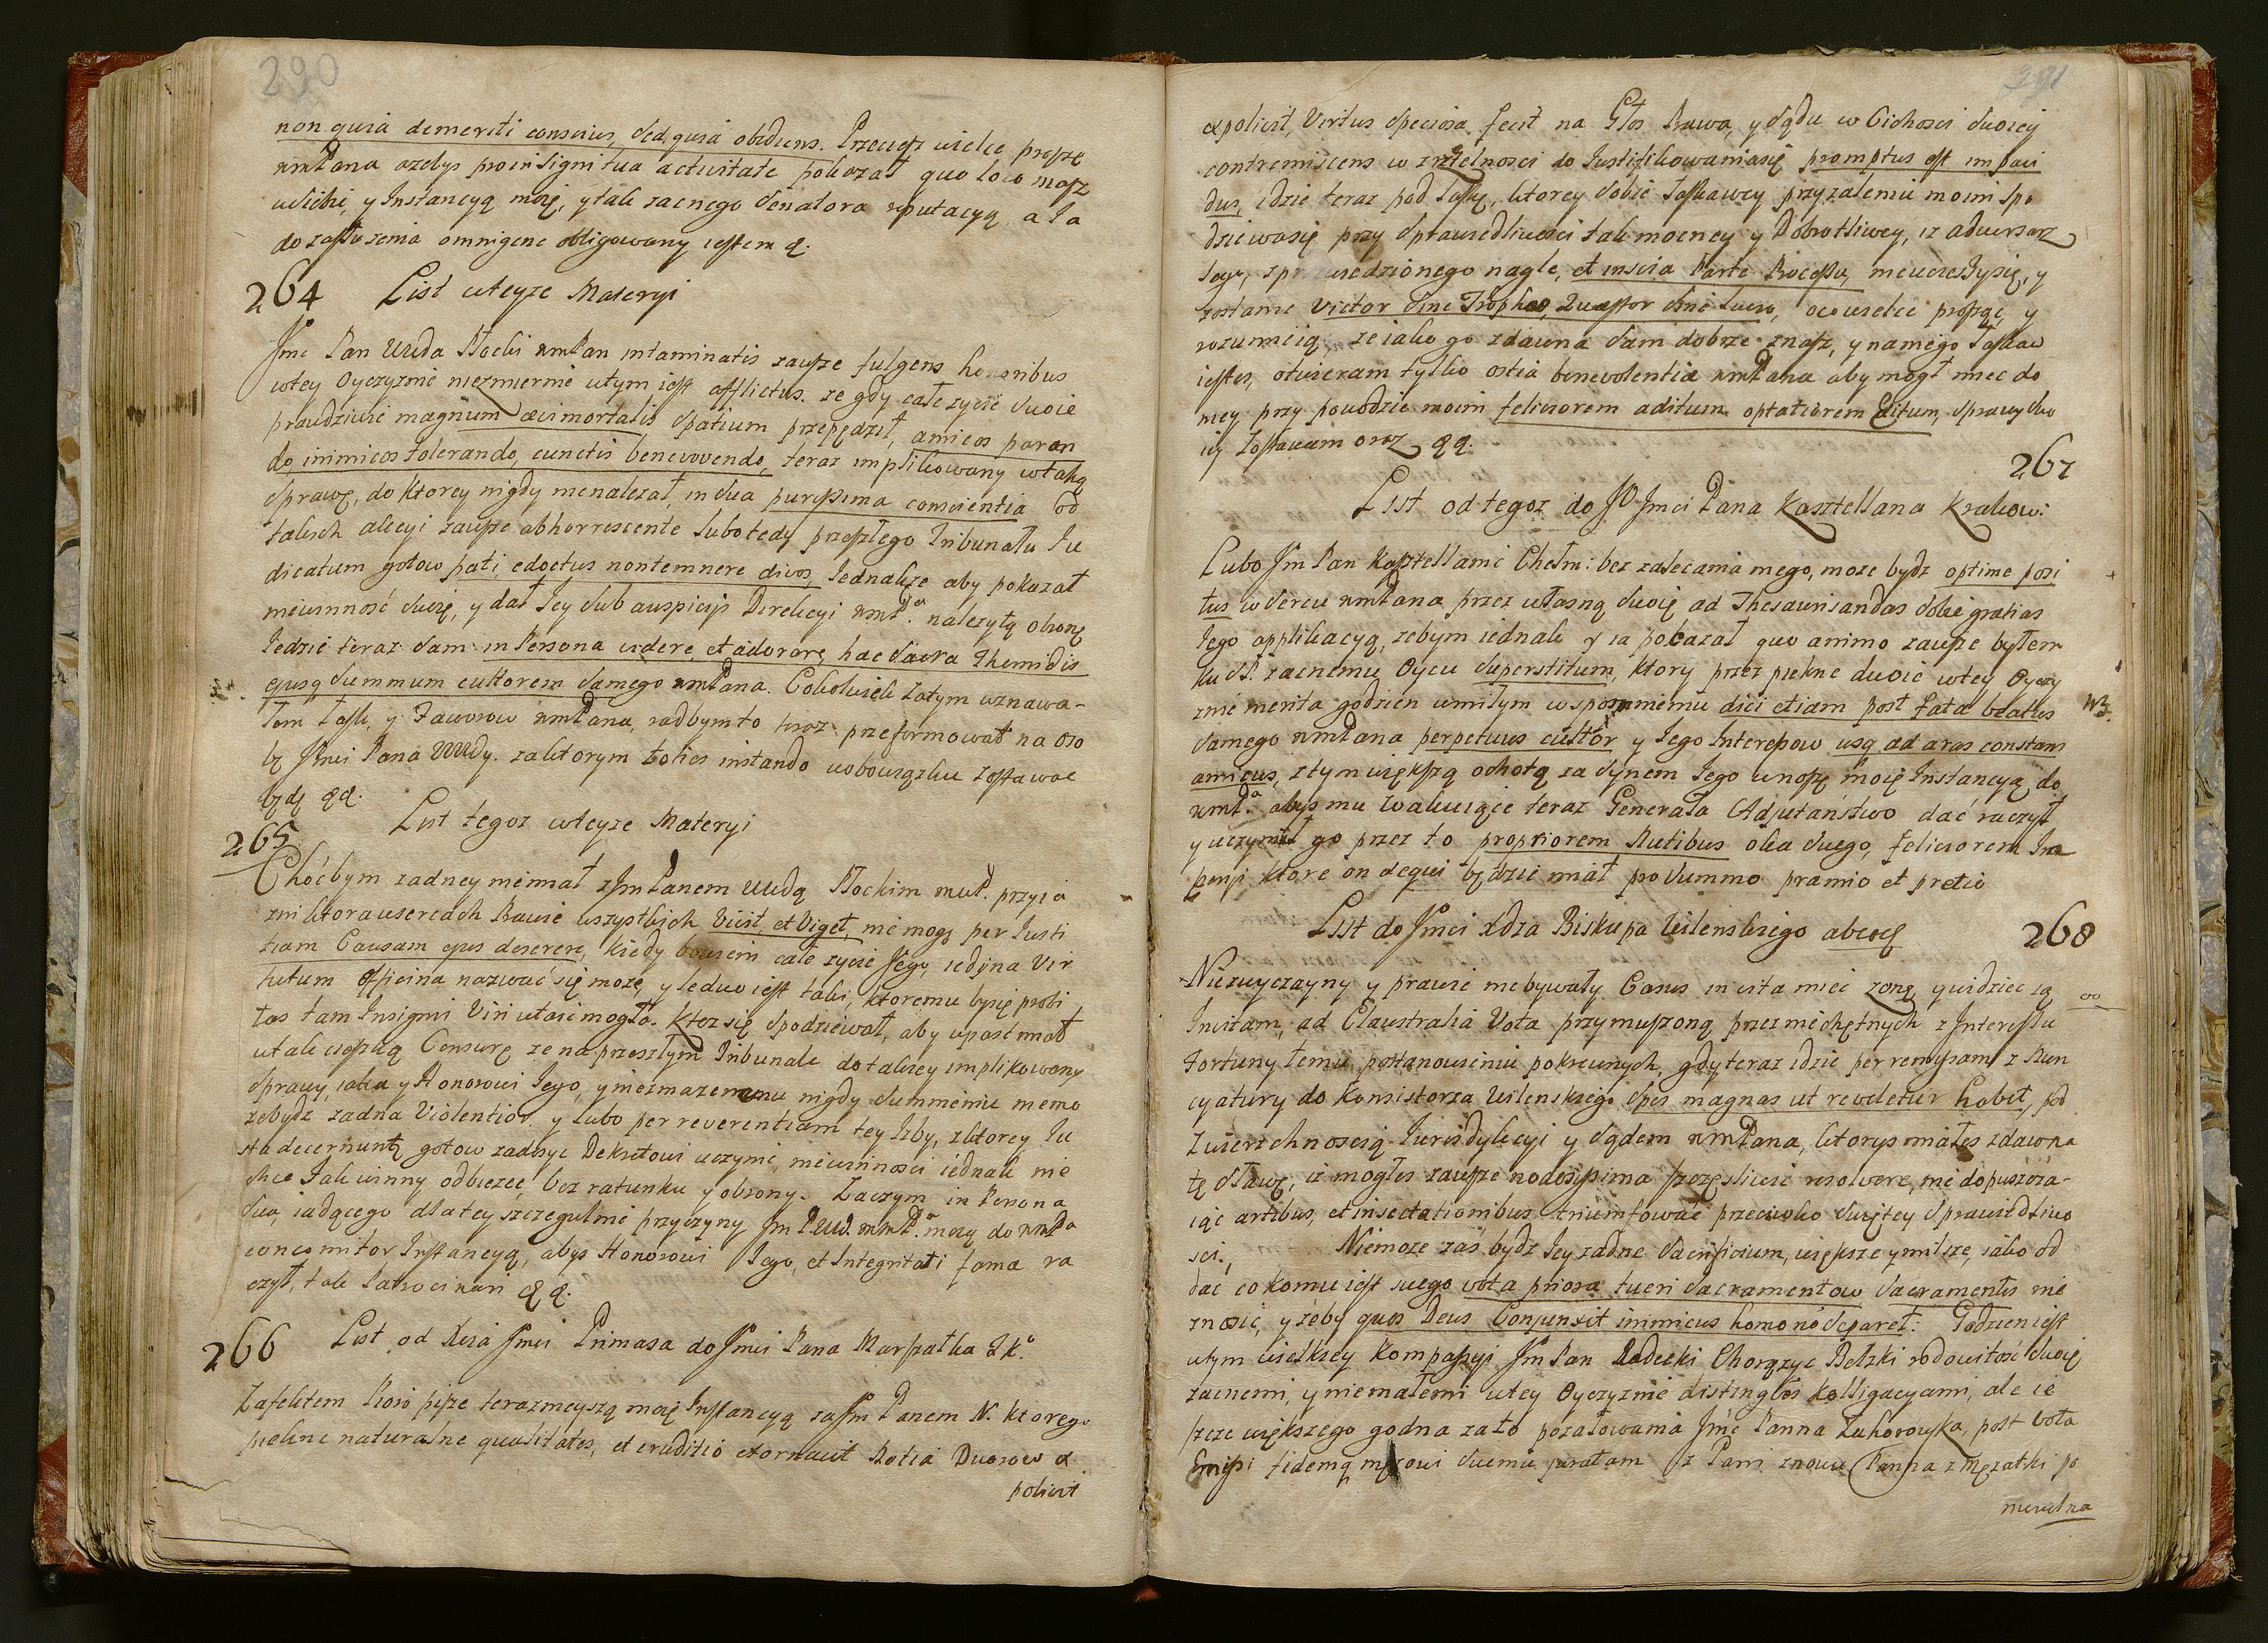 290
non quia demeriti conscius, sed quia obediens. Przecież wielce proszę
wmPana ażebyś pro insigni tua activitate pokazał quo loco masz
u siebie, y Instancyą moię, y tak zacnego Senatora reputacyą, a ia
do zasłużenia omnigene obligowany iestem q.
264 List w teyże Materyi
Jmc Pan Wwda Płocki wmPan intaminatis zawsze fulgens honoribus
w tey Oyczyznie niezmiernie w tym iest afflictus. ze gdy całe zycie swoie
prawdziwie magnum ævi mortalis spatium przepędził, amicos paran
do, inimicos tolerando, cunctis benevovendo, teraz implikowany w taką
sprawę, do ktorey nigdy nienależał, in sua purissima conscientia od
takich akcyi zawsze abhorrescente lubo tedy przeszłego Trybunału Iu
dicatum gotow pati, edoctus non temnere divos, Iednakże aby pokazał
niewinność swoię, y dał Iey sub auspicijs Direkcyi wmPa. należytą obronę
Iedzie teraz sam in Persona videre, et adorare, hac sacra Themidis
ejusq summum cultorem samego wmPana. Cokolwiek zatym uznawa-
łem łask, y Faworow wmPana, radbym to teraz przeformował na oso
bę Jmci Pana Wwdy. za ktorym toties instando w obowiązku zostawac
będę qq.
265 List tegoz w teyze Materyi
Choćbym zadney niemiał z Jm Panem Wwdą Płockim mwP. przyia
zni ktora w sercach Prawie wszystkich Vicit, et Viget, nie mogę per Iusti
tiam Causam ejus deserere, kiedy bowiem całe zycie Jego, iedyna Vir
tutum officina nazwać się może, y ledwo iest taki, ktoremu by się probi
tas tam Insigni Viri utaić mogła. Ktoz się spodziewał, aby upaść miał
w tak cięszką Censurę ze na przeszłym Tribunale do takiey implikowany
sprawy, iaka y Honorowi Iego, y niezmazanemu nigdy summieniu niemo
ze bydz zadna Violentior. y lubo per reverentiam tey Izby, z ktorey Iu
sta decernunt, gotow zadosyc Dekretowi uczynić, niewinności iednak nie
chce Iak winny odbiezec, bez ratunku y obrony. Zaczym in Persona
sua, iadącego dla tey szczegulnie przyczyny Jm PWd. wmPa. moią do wmPa
concomitor Instancyą, abyś Honorowi Iego, et Integritati famæ ra
czył, tak Patrocinari qq.
266 List od Xcia Jmci Primasa do Jmci Pana Marszałka Lk.o
Z affektem Pioro pisze teraznieyszą moię Instancyą za Jm Panem N. ktorego
piękne naturalne qualitates, et eruditio exornavit Notia Dworow ex
poliuit
291
expoliuit, Virtus speciosa fecit na Głos Prawa, y sądu w Cichosci swoiey
contremiscens w rzetelności do Iustifikowania się promptus est impavi
dus, idzie teraz pod laskę, ktorey sobie łaskawey przy zaleniu moim spo
dziewa się przy sprawiedliwości tak mocney y Dobrotliwey, iz adversarz
Iego, z przewiedzionego nagle, et inscia Parte Processu, nieucieszy się, y
zostanie Victor sine Tropheo, Quæstor sine lucro, oco wielce proszę, y
rozumieią, ze iako go zdawna sam dobrze znasz, y na niego łaskaw
iestes, otwieram tylko ostia benevolentiæ wmPana aby mogł mieć do
niey przy powodzie moim feliciorem aditum optatiorem Exitum, sprawy swo
iey zostawam oraz qq.
267
List od tegoz do JW Jmci Pana Kasztellana Krakow:
Lubo Jm Pan Kasztellanic Chełm: bez zalecania mego, moze bydz optime posi
tus w sercu wmPana przez własną swoię ad Thesaurisandas sobie gratias
Iego applikacyą, zebym iednak y ia pokazał quo animo zawsze byłem
ku ś.P. zacnemu Oycu superstitum, ktory przez piękne swoie w tey Oyczy
znie merita godzien w miłym wspomnieniu dici etiam post Fata beatus
samego wmPana perpetuus cultor y Iego Interessow usq ad aras constans
amicus, z tym większą ochotą za synem Iego wnoszę moię Instancyą do
wmPa. abyś mu wakuiące teraz Generała Adjutaństwo dać raczył
y uczynił go przez to propriorem Nutibus oka swego, feliciorem Im
pensi ktore on sequi będzie miał pro summo præmio et pretio
List do Jmci Xdza Biskupa Wilenskiego
268
Niezwyczayny y prawie niebywały Casus in vita mieć zonę, y widziec ią
Invitam, ad Claustralia Vota przymuszoną przez niechętnych z Interessu
Fortuny temu postanowieniu pokrewnych, gdy teraz idzie per remissam z Nun
cyatury do Konsistorza Wilenskiego spes magnas ut reveletur habet, pod
Zwierzchnoscią Iurisdykcyi y sądem wmPana, ktoryś miałeś zdawna
tę sławę, iz mogłeś zawsze nodosissima szczęśliwie resolvere, nie dopuszcza-
iąc artibus, et insectationibus triumfować przeciwko swiętey sprawiedliwo
sci. Niemoze zaś bydz Iey zadne sacrificium, większe y milsze, iako od
dać co komu iest swego vota priora tueri sacramentow sacramentis nie
znosić, y zeby quos Deus Conjunxit inimicus homo nō separet: Godzien iest
w tym wielkiey Kompassyi Jm Pan Radecki Chorązyc Bełzki rodowitość swoię
zacnemi, y niemałemi w tey Oyczyznie distingwos kolligacyami, ale ie
szcze większego godna zało pozałowania Jmc Panna Zahorowska, post vota
Emissi fidemq męzowi swemu juratam z Pani znowu Panna z męzatki po
niewolna